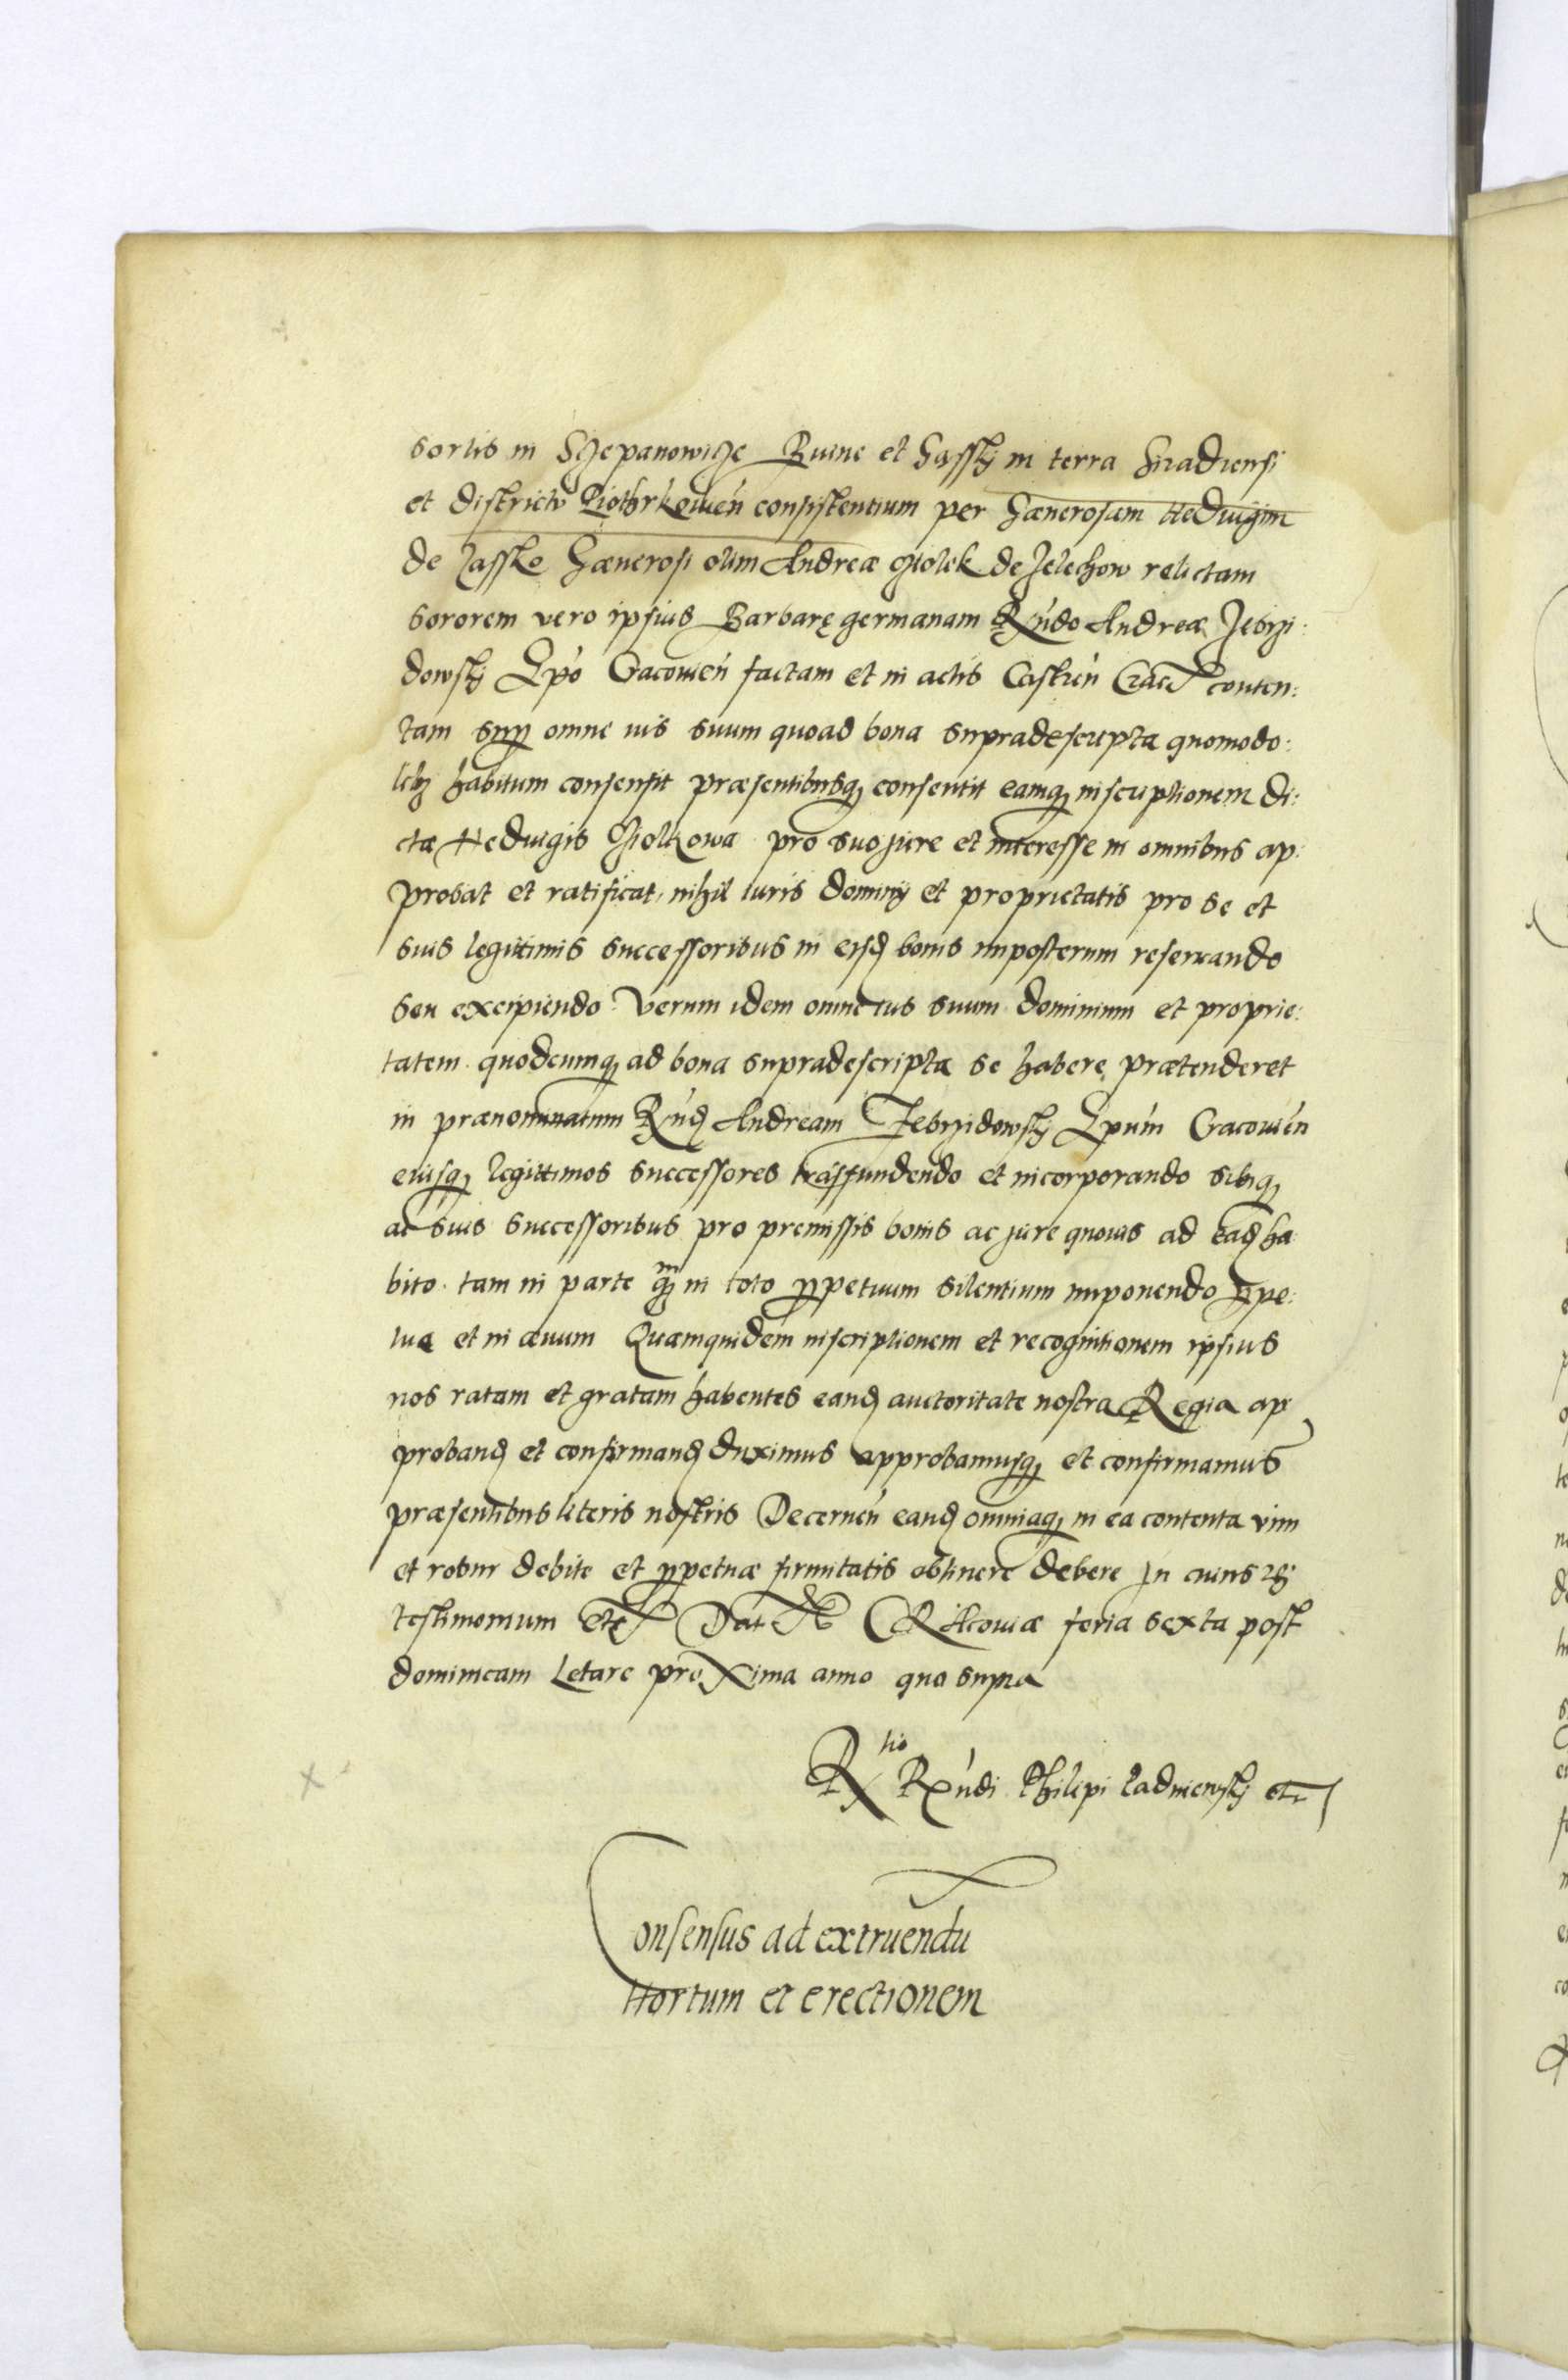 sortis in Sczepanowicze Buine et Gassky in terra Siradiensi
et districtu Piothrkovien consistentium per Gænerosam Hedvigim
de Lassko Gænerosi olim Andreæ Cziolek de Zelechow relictam
sororem vero ipsius Barbarę germanam Rndo Andreæ Zebrzi:
dowsky Epo Cracovien factam et in actis Castren Crac conten:
tam supra omne ius suum quoad bona supradescripta quomodo:
libet habitum consensit præsentibusq consentit eamq inscriptionem di:
ctæ Hedvigis Cziolkowa pro suo jure et interesse in omnibus ap:
probat et ratificat, nihil iuris dominy et proprietatis pro se et
suis legittimis successoribus in eisd bonis imposterum reservando
seu excipiendo Verum idem omne ius suum dominium et proprie:
tatem quodcumq ad bona supradescripta se habere prætenderet
in prænominatum Rnd Andream Zebrzidowsky Epum Cracovien
eiusq legittimos successores trasfundendo et incorporando sibiq
ac suis successoribus pro premissis bonis ac jure quovis ad ead ha
bito tam in parte qm in toto perpetuum silentium imponendo perpe:
tua et in ævum Quamquidem inscriptionem et recognitionem ipsius
nos ratam et gratam habentes eand auctoritate nostra Regia ap
proband et confirmand duximus approbamusq et confirmamus
præsentibus literis nostris Decernen eand omniaq in ea contenta vim
et robur debite et perpetuæ firmitatis obtinere debere In cuius rei
testimonium etc Dat CRAcoviæ feria sexta post
dominicam Letare proXima anno quo supra
Rtio Rxndi Philipi Padniewsky etc
Consensus ad extruendu
Hortum et erectionem